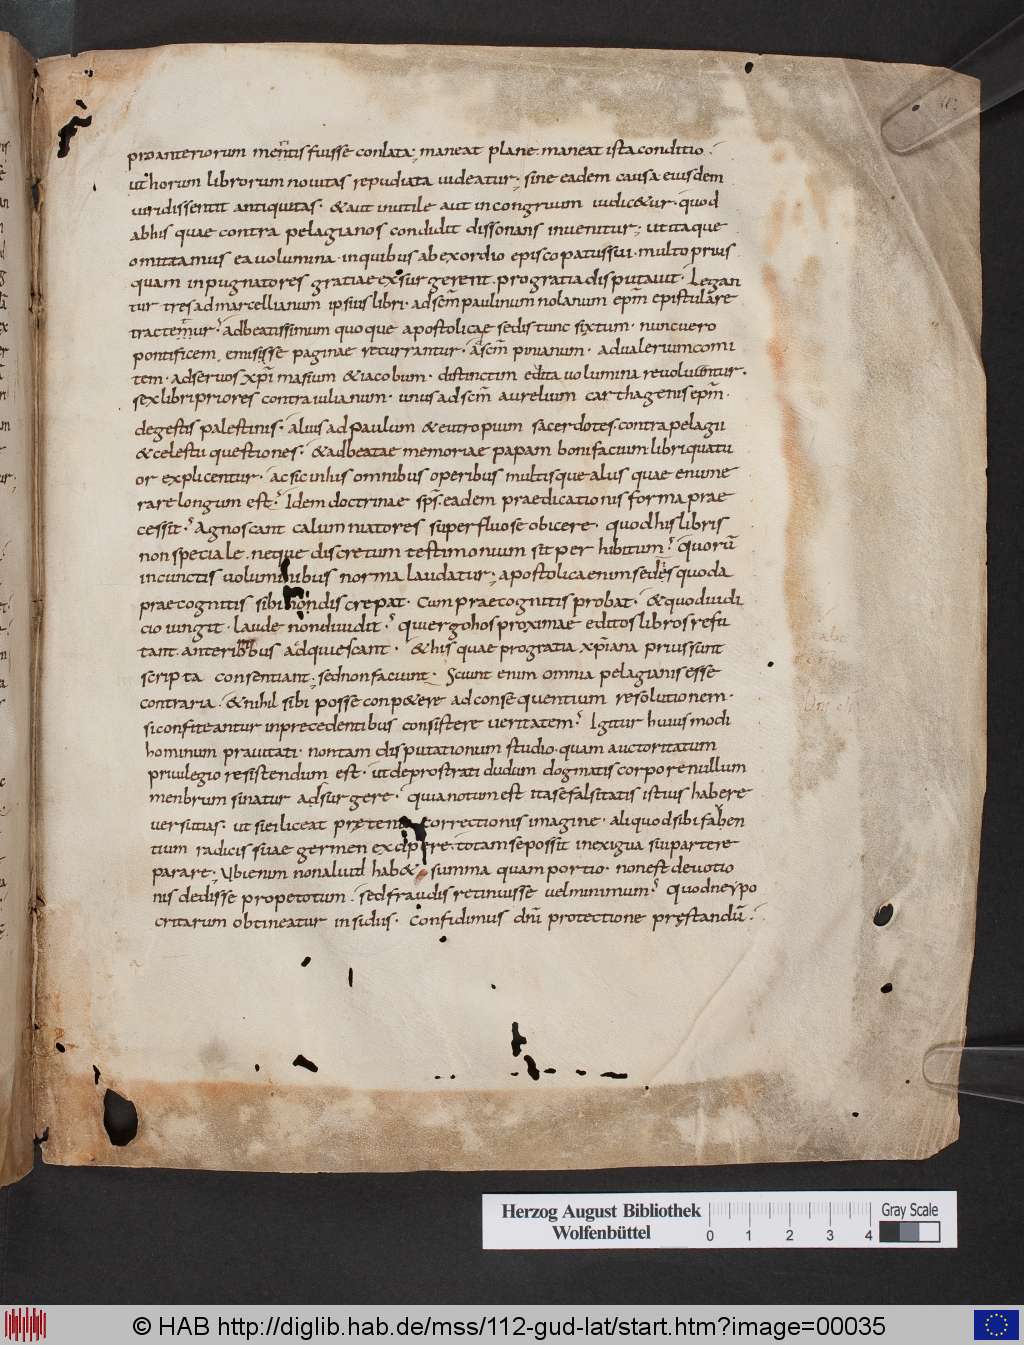 pro anteriorum meritis fuisse conlata; maneat plane. maneat ista conditio.
ut horum librorum nouitas repudiata uideatur; sine eadem causa eiusdem
uiri dissentit antiquitas. & aut inutile aut incongruum iudic&ur. quod
ab his quae contra pelagianos condidit dissonans inuenitur; ut itaque
omittamus ea uolumina. in quibus ab exordio episcopatus sui. multo prius
quam inpugnatores gratiae exsurgerent. pro gratia disputauit. Legan
tur tres ad marcellianum ipsius libri. ad scm̄ paulinum nolanum epm̄ epistulare
tractemur. ad beatissimum quoque apostolicae sedis tunc sixtum. nunc uero
pontificem, emisisse paginae recurrantur. ad scm̄ pinianum. ad ualerium comi
tem. ad seruos xp̄i masium & iacobum. distinctim edita uolumina reuoluuntur.
sex libri priores contra iulianum. unus ad scm̄ aurelium carthagenis epm̄.
de gestis palestinis. alius ad paulum & eutropium sacerdotes. contra pelagii
& celestii questiones. & ad beatae memoriae papam bonifacium libri quatu
or explicentur. ac sic in his omnibus operibus multisque aliis quae enume
rare longum est. Idem doctrinae sps̄. eadem praedicationis forma prae
cessit. Agnoscant calumniatores superfluose obicere. quod his libris
non speciale. neque discretum testimonium sit perhibitum. quorū
in cunctis uoluminibus norma laudatur; apostolica enim sedes quod a
praecognitis sibi non discrepat. Cum praecognitis probat. & quod iudi
cio iungit. laude non diuidit. qui ergo hos proximae editos libros refu
tant. anterioribus adquiescant. & his quae pro gratia xp̄iana prius sunt
scripta consentiant; sed non faciunt. Sciunt enim omnia pelagianis esse
contraria. & nihil sibi posse conp&ere ad consequentium resolutionem.
si confiteantur in precedentibus consistere ueritatem. Igitur huius modi
hominum prauitati. non tam disputationum studio. quam auctoritatum
priuilegio resistendum est. ut de prostrati dudum dogmatis corpore nullum
menbrum sinatur adsurgere. quia notum est ita se falsitatis istius habere
uersutias. ut si ei liceat correctionis imagine. aliquod sibi
tium radicis suae germen excipere. totam se possit in exigua sui partere
parare. Ubi enim non aliud hab& summa quam portio. non est deuotio
nis dedisse prope totum. sed fraudis retinuisse uel minimum. quod ne ypo
critarum obtineatur insidiis. Confidimus dn̄i protectione pręstandū.
Herzog August Bibliothek
Wolfenbüttel
0 1 2 3 4
Gray Scale
© HAB http://diglib.hab.de/mss/112-gud-lat/start.htm?image=00035